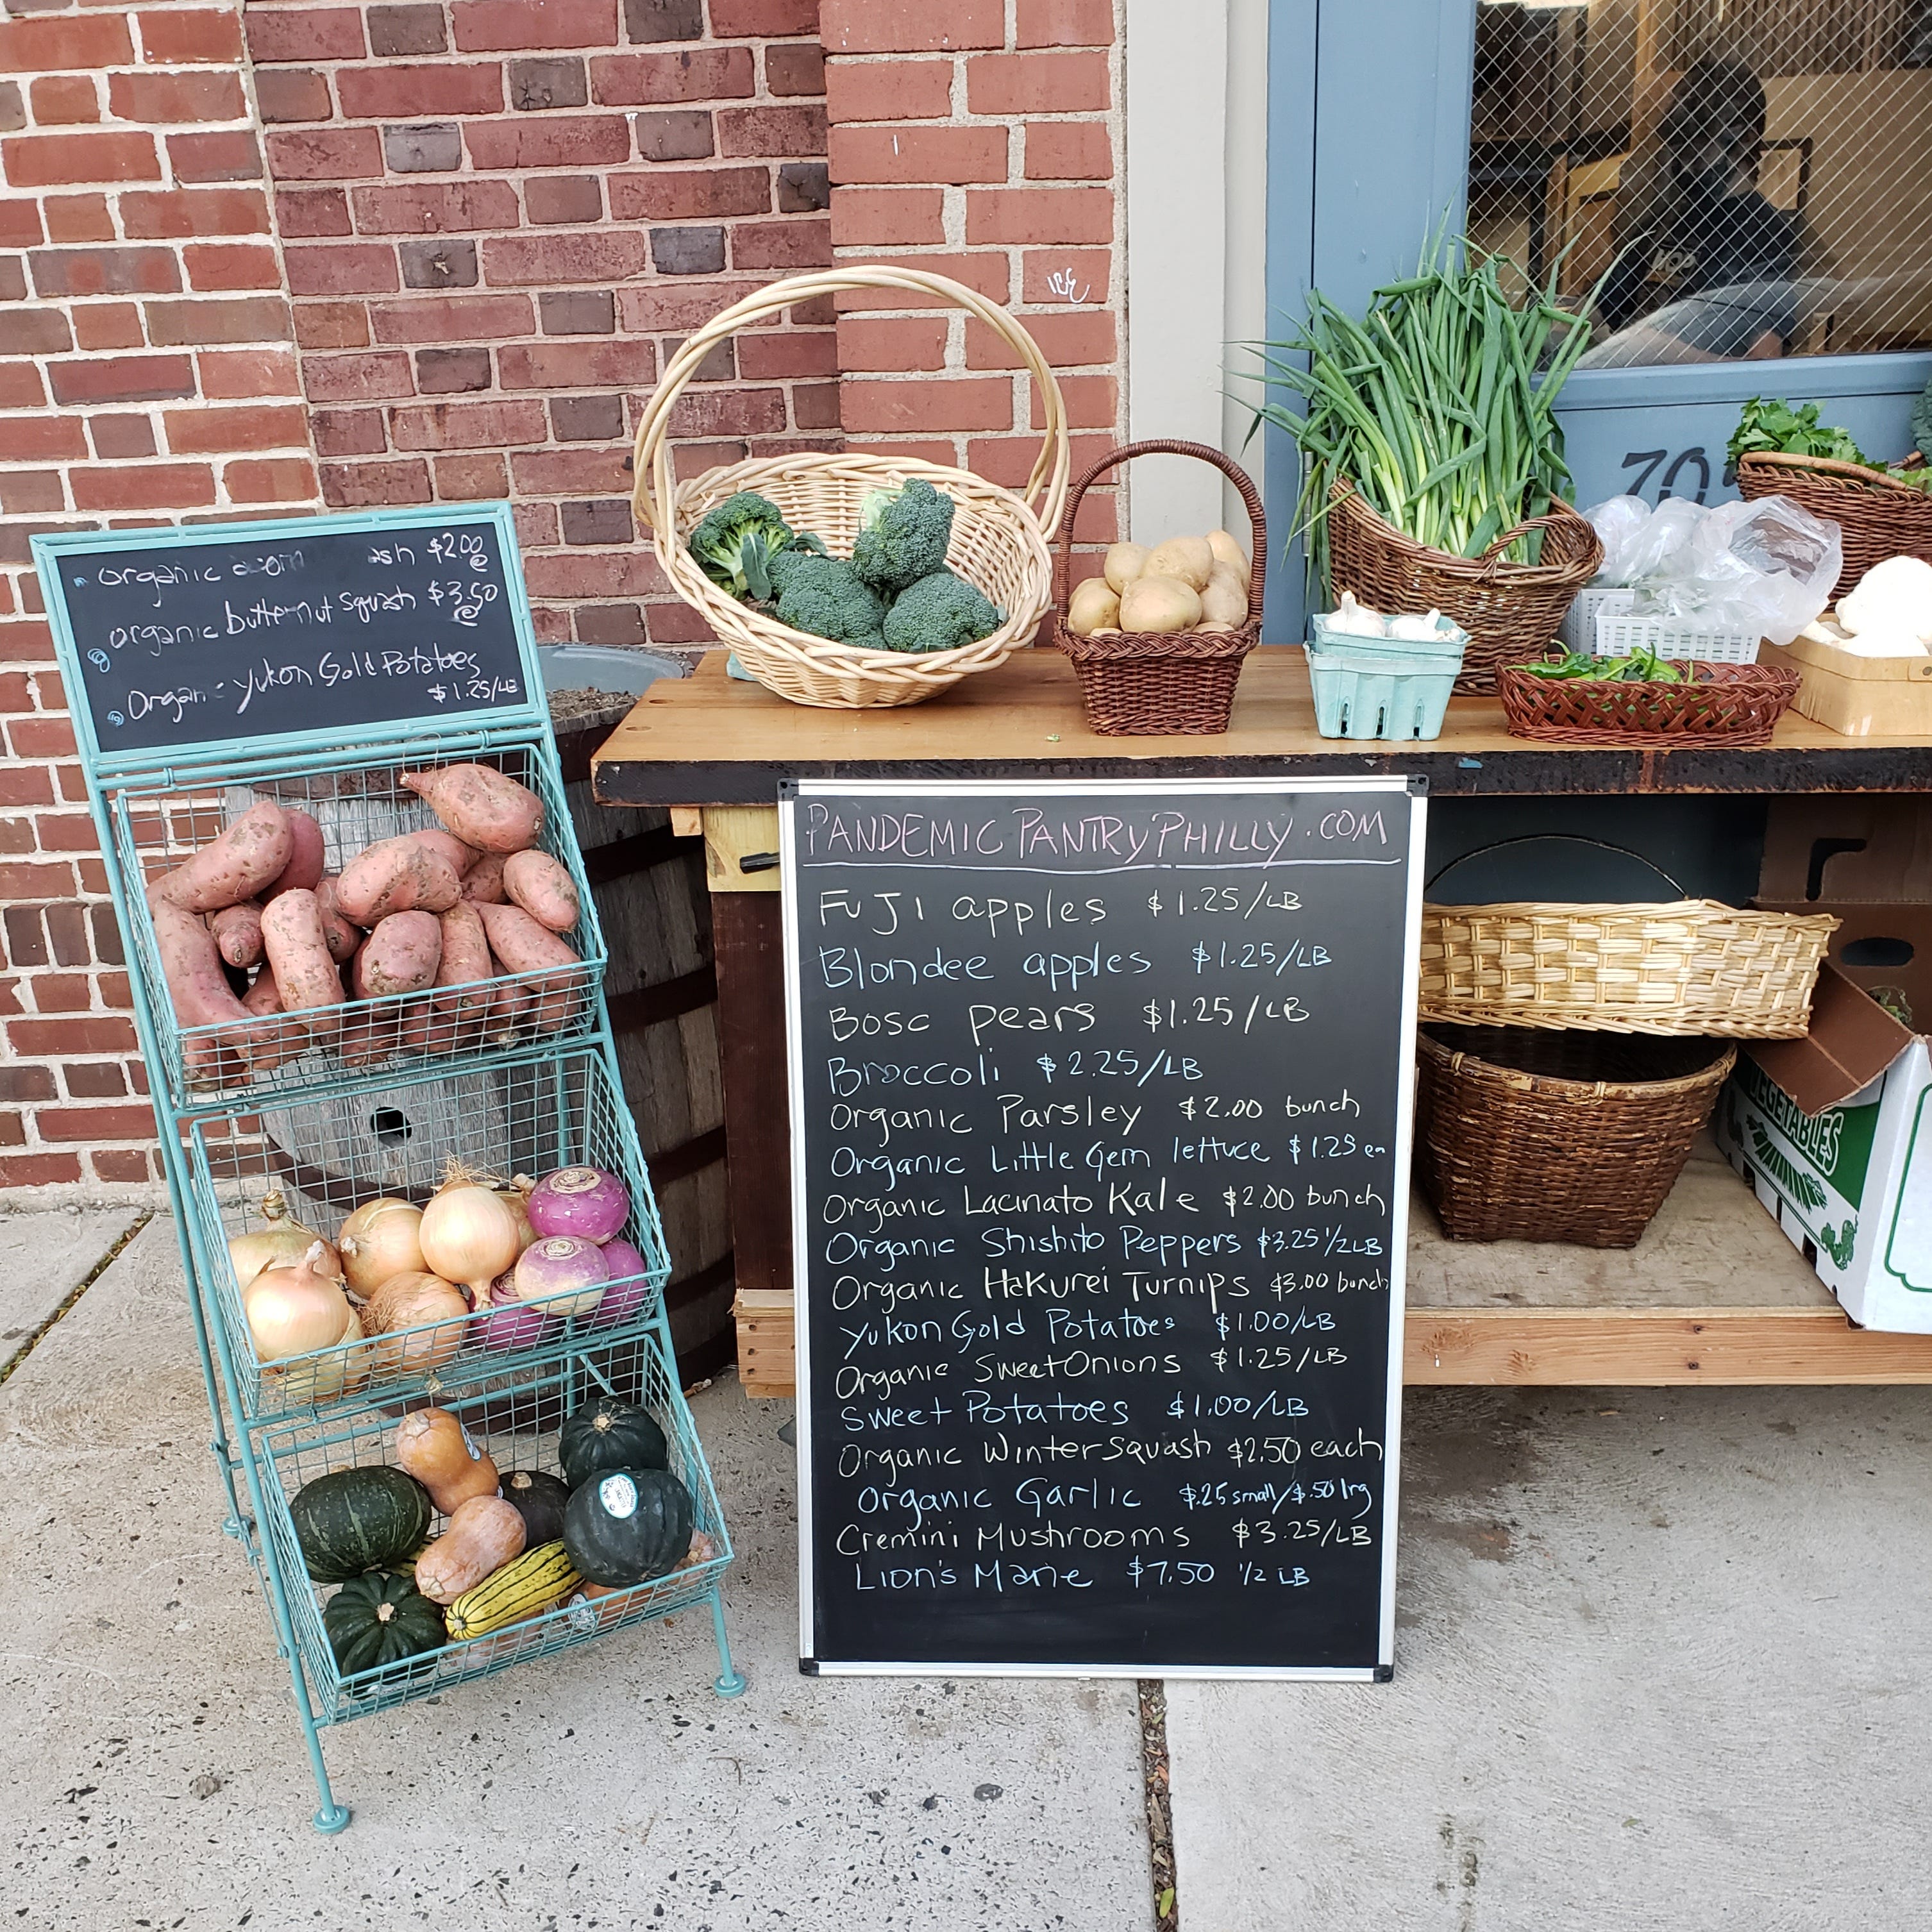 organic acorn ash $2.00
@
organic butternut squash $3.50
@
Organic Yukon Gold Potatoes
$1.25/LB
PANDEMICPANTRYPHILLY.COM
FUJI apples $1.25/LB
Blondee apples $1.25/LB
Bosc pears $1.25/LB
Broccoli $2.25/LB
Organic Parsley $2.00 bunch
Organic Little Gem lettuce $1.25 ea
Organic Lacinato Kale $2.00 bunch
Organic Shishito Peppers $3.25 1/2 LB
Organic Hakurei Turnips $3.00 bunch
Yukon Gold Potatoes $1.00/LB
Organic Sweet Onions $1.25/LB
Sweet Potatoes $1.00/LB
Organic Winter Squash $2.50 each
Organic Garlic $.25 small/$.50 lrg
Cremini Mushrooms $3.25/LB
Lion's Mane $7.50 1/2 LB
70
VEGETABLES